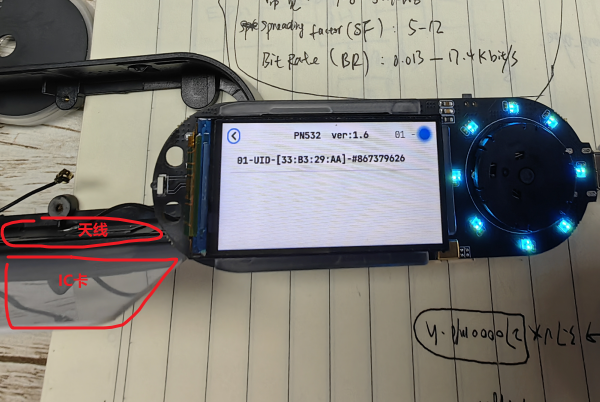 Spreading factor (SF) : 5-12
Bit Rate (BR) : 0.013 - 17.4 Kbit/s
PN532 ver:1.6 01 -
01-UID-[33:B3:29:AA]-#867379626
天线
IC卡